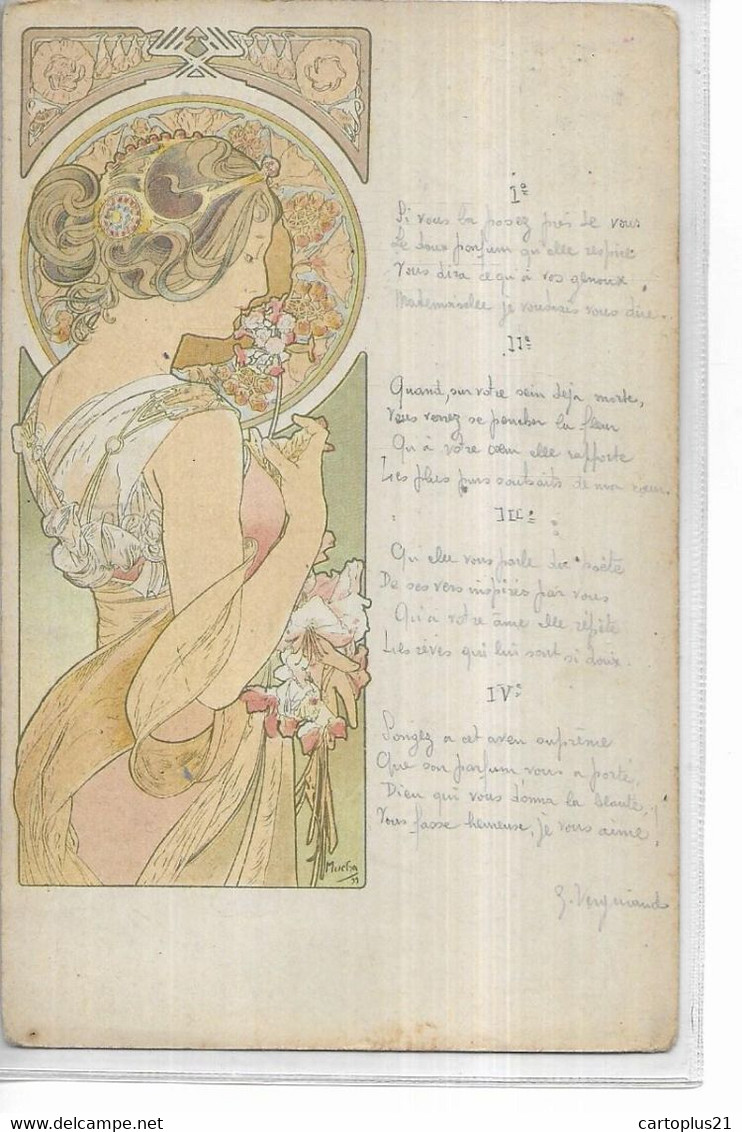 I°
Si vous la posez près de vous
Le doux parfum qu'elle respire
Vous dira ce qu'à vos genoux
Mademoiselle je voudrais vous dire.
II°
Quand, sur votre sein déjà morte,
Vous verrez se pencher la fleur
Qu'à votre cœur elle rapporte
Les plus purs souhaits de mon
III°
Qu'elle vous parle du poète
De ses vers inspirés par vous
Qu'à votre âme elle répète
Les rêves qui lui sont si doux.
IV°
Songez a cet aveu suprême
Que son parfum vous a porté,
Dieu qui vous donna la beauté,
Vous fasse heureuse, je vous aime!
Mucha
99
delcampe.net
cartoplus21